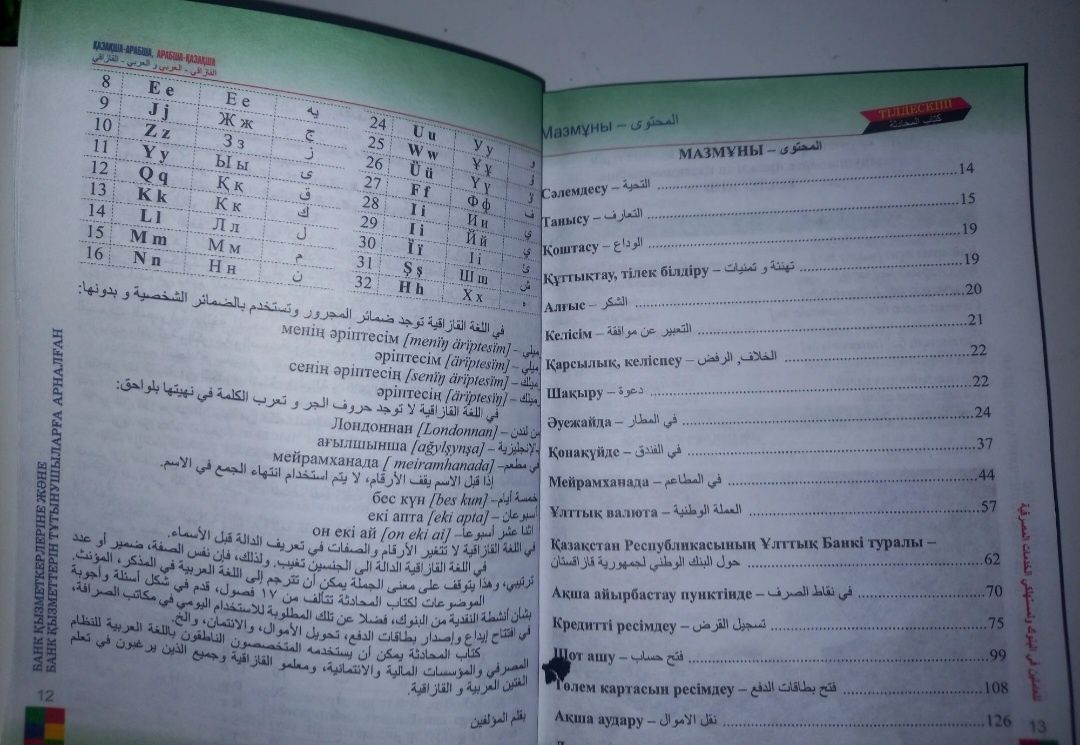 ҚАЗАҚША-АРАБША, АРАБША-ҚАЗАҚША
القازاقي - العربي و العربي - القازاقي
8 E e Е е يه
9 J j Ж ж ج
10 Z z З з ز
11 Y y Ы ы ى
12 Q q Қ қ ق
13 K k К к ك
14 L l Л л ل
15 M m М м م
16 N n Н н ن
24 U u У у و
25 W w Ұ ұ
26 Ü ü Ү ү
27 F f Ф ф ف
28 I i И и ي
29 I i Й й ي
30 Ï ï І і ئ
31 Ş ş Ш ш ش
32 H h Х х ه
في اللغة القازاقية توجد ضمائر المجرور وتستخدم بالضمائر الشخصية و بدونها:
менің әріптесім [meniŋ äriptesïm] –
әріптесім [äriptesïm] –
сенің әріптесің [seniŋ äriptesïm] –
әріптесің [äriptesïŋ] –
في اللغة القازاقية لا توجد حروف الجر و تعرب الكلمة في نهيتها بلواحق:
Лондоннан [Londonnan] – من لندن
ағылшынша [ağylşynşa] –
мейрамханада [ meiramhanada] – في مطعم
إذا قبل الاسم يقف الأرقام، لا يتم أستخدام انتهاء الجمع في الاسم.
бес күн [bes kun] – خمسة أيام
екі апта [eki apta] – أسبوعان
он екі ай [on eki ai] – اثنا عشر أسبوعا
في اللغة القازاقية لا تتغير الأرقام والصفات في تعريف الدالة قبل الأسماء.
في اللغة القازاقية الدالة الى الجنسين تغيب. ولذلك، فإن نفس الصفة، ضمير أو عدد
ترتيبي، وهذا يتوقف على معنى الجملة يمكن أن تترجم إلى اللغة العربية في المذكر، المؤنث.
الموضوعات لكتاب المحادثة تتألف من ١٧ فصول، قدم في شكل أسئلة وأجوبة
بشأن أنشطة النقدية من البنوك، فضلا عن تلك المطلوبة للاستخدام اليومي في مكاتب الصرافة،
في افتتاح إيداع وإصدار بطاقات الدفع، تحويل الأموال، والائتمان، والخ.
كتاب المحادثة يمكن أن يستخدمه المتخصصون الناطقون باللغة العربية للنظام
المصرفي والمؤسسات المالية والائتمانية، ومعلمو القازاقية وجميع الذين يرغبون في تعلم
القازاقية و العربية
بقلم المؤلفين
БАНК ҚЫЗМЕТКЕРЛЕРІНЕ ЖӘНЕ
БАНК ҚЫЗМЕТТЕРІН ТҰТЫНУШЫЛАРҒА АРНАЛҒАН
12
Мазмұны – المحتوى
ТІЛДЕСКІШ
كتاب المحادثة
МАЗМҰНЫ – المحتوى
Сәлемдесу – التحية 14
Танысу – التعارف 15
Қоштасу – الوداع 19
Құттықтау, тілек білдіру – تهنئة و تمنيات 19
Алғыс – الشكر 20
Келісім – التعبير عن موافقة 21
Қарсылық, келіспеу – الخلاف, الرفض 22
Шақыру – دعوة 22
Әуежайда – في المطار 24
Қонақүйде – في الفندق 37
Мейрамханада – في المطاعم 44
Ұлттық валюта – العملة الوطنية 57
Қазақстан Республикасының Ұлттық Банкі туралы –
حول البنك الوطني لجمهورية قازاقستان 62
Ақша айырбастау пунктінде – في نقاط الصرف 70
Кредитті ресімдеу – تسجيل القرض 75
Шот ашу – فتح حساب 99
Төлем картасын ресімдеу – فتح بطاقات الدفع 108
Ақша аудару – نقل الاموال 126
13